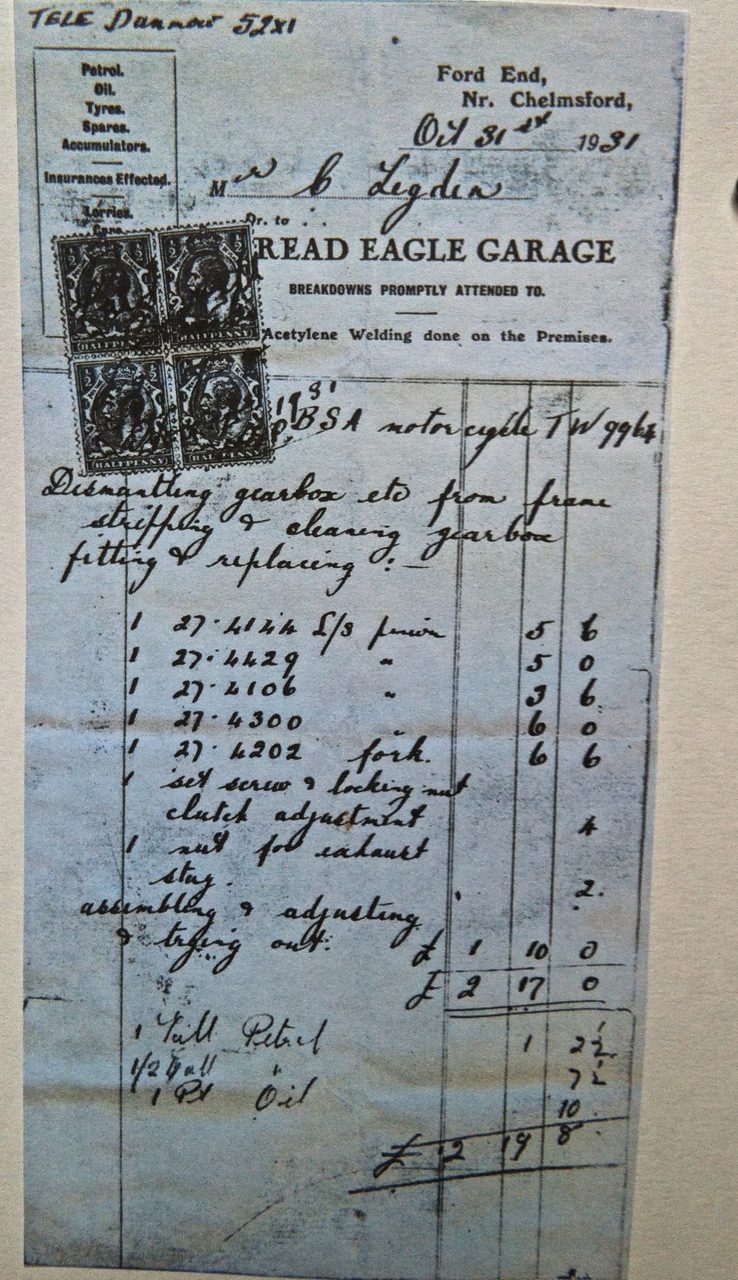 TELE Dunmow 52x1
Petrol.
Oil.
Tyres.
Spares.
Accumulators.
Insurances Effected.
Lorries.
Cars.
Ford End,
Nr. Chelmsford,
Oct 31st 1931
Mr C Legden
Dr. to
READ EAGLE GARAGE
BREAKDOWNS PROMPTLY ATTENDED TO.
Acetylene Welding done on the Premises.
HALFPENNY HALFPENNY
HALFPENNY HALFPENNY
BSA motor cycle TW 9964
Dismantling gearbox etc from frame
stripping & cleaning gearbox
fitting & replacing :—
1 27.4144 L/S pinion 5 6
1 27.4429 " 5 0
1 27.4106 " 3 6
1 27.4300 6 0
1 27.4202 fork. 6 6
1 set screw & locking nut
clutch adjustment 4
1 nut for exhaust
stay. 2.
assembling & adjusting
& trying out. £ 1 10 0
£ 2 17 0
1 Gall Petrol 1 2½
1/2 Gall " 7½
1 Pt Oil 10
£ 2 19 8